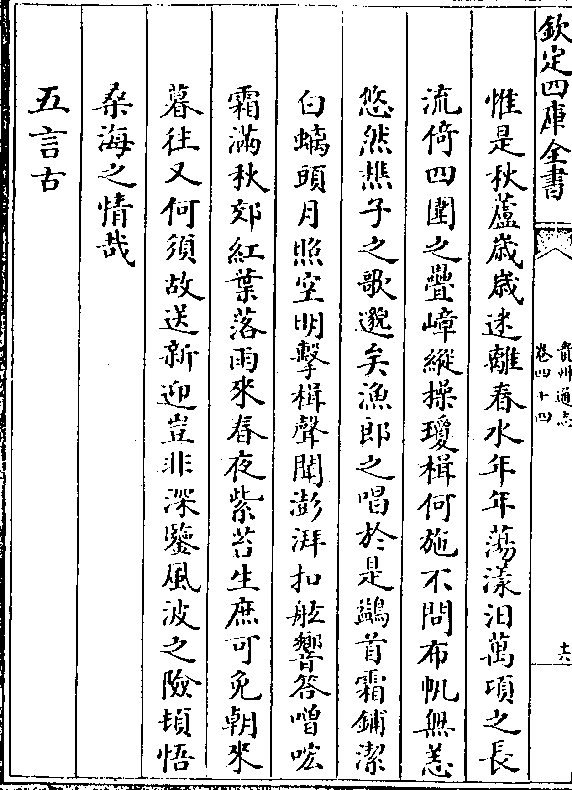 欽定四庫全書
貴州通志
卷四十四
十六
惟是秋蘆歲歲迷離春水年年蕩漾汨萬頃之長
流倚四圍之疊嶂縱操瓊楫何施不問布帆無恙
悠然樵子之歌邈矣漁郎之唱於是鷁首霜鋪潔
白螭頭月照空明擊楫聲聞澎湃扣舷響答噌吰
霜滿秋郊紅葉落雨來春夜紫苔生庶可免朝來
暮往又何須故送新迎豈非深鑒風波之險頓悟
桑海之情哉
五言古